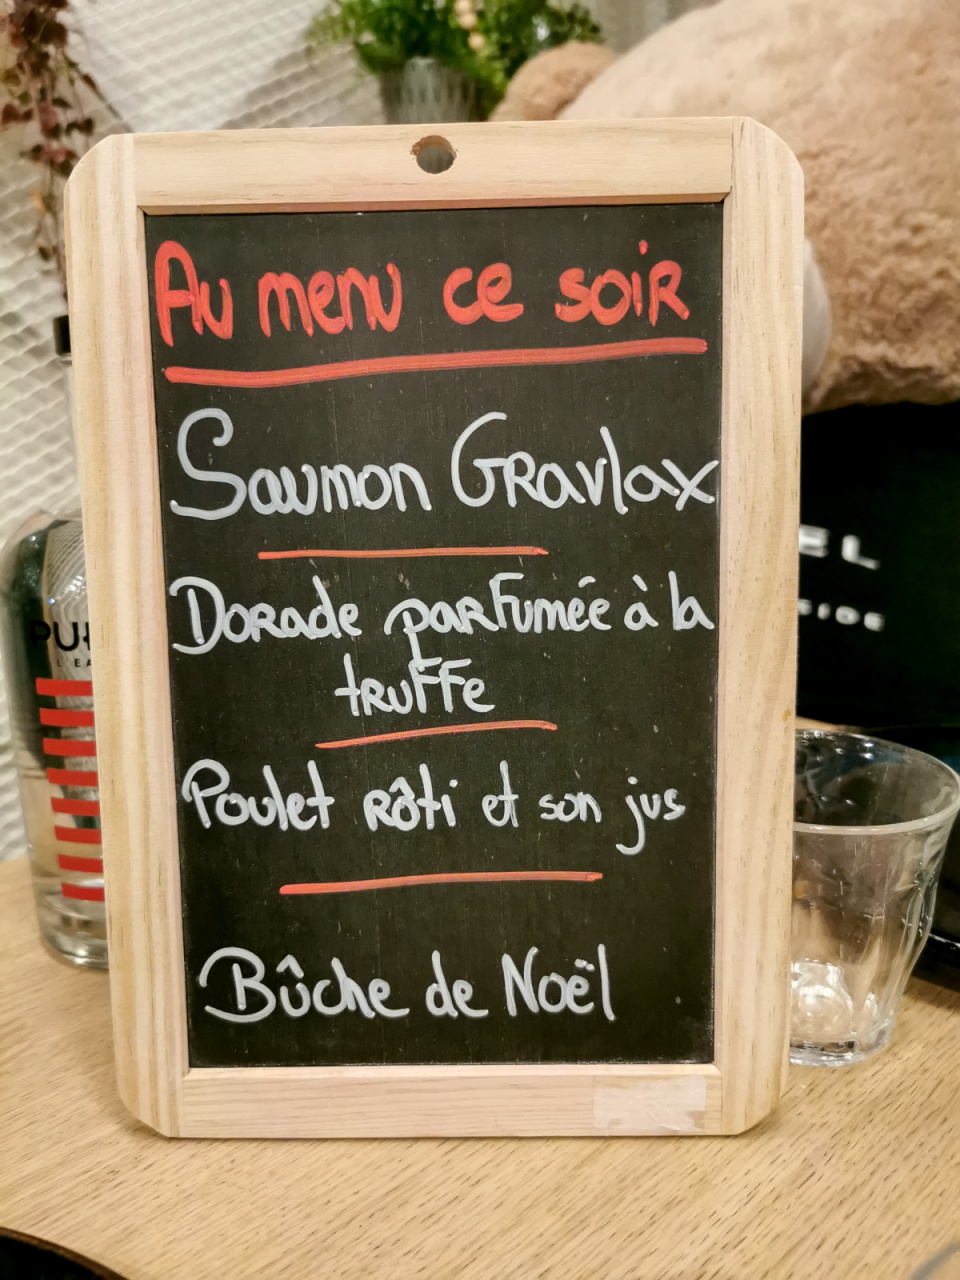 Au menu ce soir
Saumon Gravlax
Dorade parfumée à la
truffe
Poulet rôti et son jus
Bûche de Noël
PU
L'EA
EL
SIDE